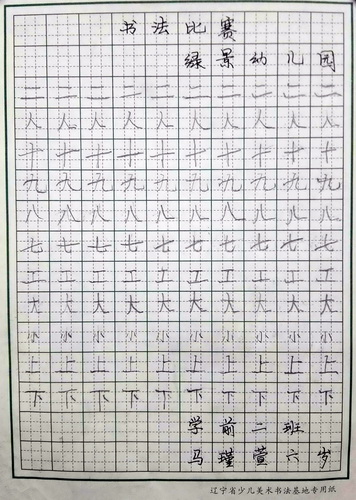 书法比赛
绿景幼儿园
二二二二二二二二二二
人人人人人人人人人人
十十十十十十十十十十
九九九九九九九九九九
八八八八八八八八八八
七七七七七七七七七七
工工工工工工工工工工
大大大大大大大大大大
小小小小小小小小小小
上上上上上上上上上上
下下下下下下下下下下
学前二班
马瑾萱六岁
辽宁省少儿美术书法基地专用纸